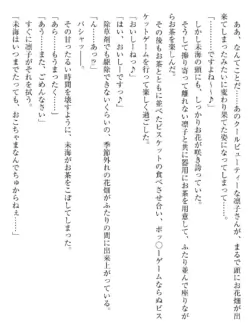 「ああ、なんてことだ……あのクールビューティーな凛子さんが、まるで頭にお花畑が出
来てしまってみたいに変わり果てた姿になってしまって……」
「……ですよねー♪」
しかし未海の頭にも、しっかりお花が咲き誇っていた。
そうして擦り寄って離れない凛子と共に器用にお茶を淹れ、ふたり並んで座りなが
らお茶を楽しんだ。
その後もお茶とともに並べたビスケットの食べさせ合い、ポッ◯ーゲームならぬビス
ケットゲームを行なって楽しく過ごした。
「おいしーねっ♪」
「はい、おいしーですっ♪」
除草剤でも駆除できないくらいの、季節外れの花畑がふたりの間に出来上がっている。
バシャッ――。
「ん……あっ？」
その甘ったるい時間を壊すように、未海がお茶をこぼしてしまった。
「あら……もうまったく……」
「あう……ごめんなさい」
すぐに凛子がそれを拭う。
「未海はもう……おこちゃまなんでちゅからねぇ……」